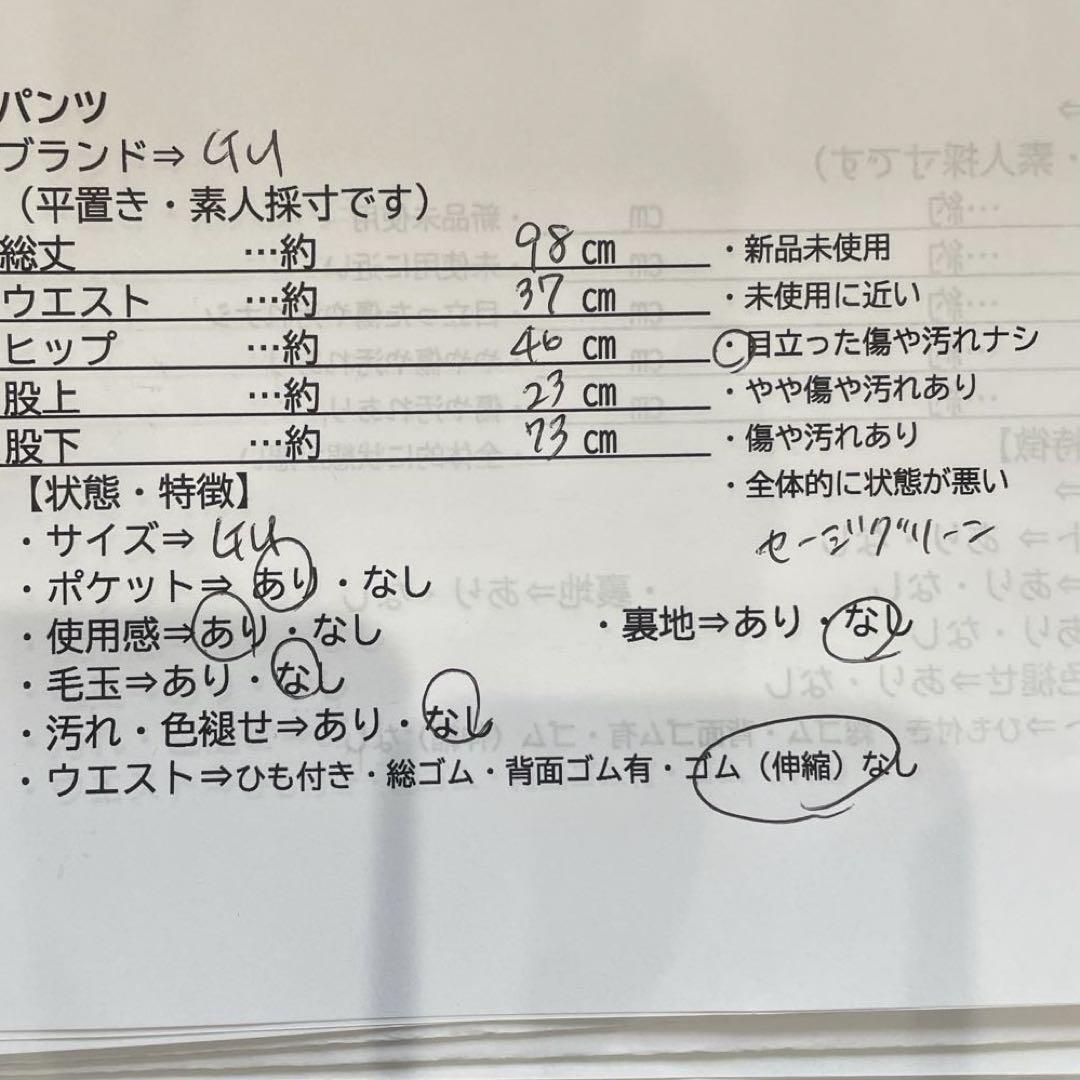 パンツ
ブランド⇒ GU
（平置き・素人採寸です）
総丈 …約 98 ㎝ ・新品未使用
ウエスト …約 37 ㎝ ・未使用に近い
ヒップ …約 46 ㎝ ・目立った傷や汚れナシ
股上 …約 23 ㎝ ・やや傷や汚れあり
股下 …約 73 ㎝ ・傷や汚れあり
・全体的に状態が悪い
【状態・特徴】
・サイズ⇒ GU セージグリーン
・ポケット⇒ あり・なし
・使用感⇒あり・なし ・裏地⇒あり・なし
・毛玉⇒あり・なし
・汚れ・色褪せ⇒あり・なし
・ウエスト⇒ひも付き・総ゴム・背面ゴム有・ゴム（伸縮）なし